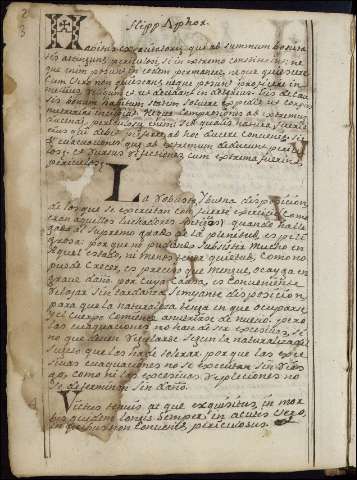 Hipp. Aphor.
Habitus exercitatorij, qui ad summum bonita
tis attingunt, periculosi, si in extremo constiterint; ne
que enim possunt in eodem permanere, neque quiescere
cum vero non quiescant, neque possint proficere in
melius, reliquum est ut decidant in deterius. his de cau
sis bonum habitum statim solvere expedit, ut corpus
nutriri
neque compressiones ad extremum
ducendae, periculosum enim, sed qualis natura fuerit
eius qui debet perferre, ad hoc ducere convenit. sic
et evacuationes quae ad extremum deducunt pericu
losae, et rursus refectiones cum extremae fuerint
periculosae.
La Robusta y buena disposicion
de los que se exercitan con fuerte exercicio, como
eran aquellos luchadores antiguos, quando halle
gado al supremo grado de la plenitud, es peli
grosa: por que ni pudiendo subsistir mucho en
aquel estado, ni menos por quietud, como no
puede crecer, es preciso que mengue, o caiga en
grave daño, por cuya causa, es conveniente
relajar sin tardanza semejante disposicion
para que la naturaleza tenga en que ocuparse
y el cuerpo comience a nutrirse de nuevo. pero
las evacuaciones no han de ser excesivas, si
no que deven reglarse segun la naturaleza del
sujeto que las ha de tolerar, por que las exce
sivas evacuaciones no se executan sin ries
go, como ni las excesivas repleciones no
se determinan sin daño.
Victus tenuis atque exquisitus, in mor
bis quidem longis semper, in acutis vero,
in quibus non convenit, periculosus.